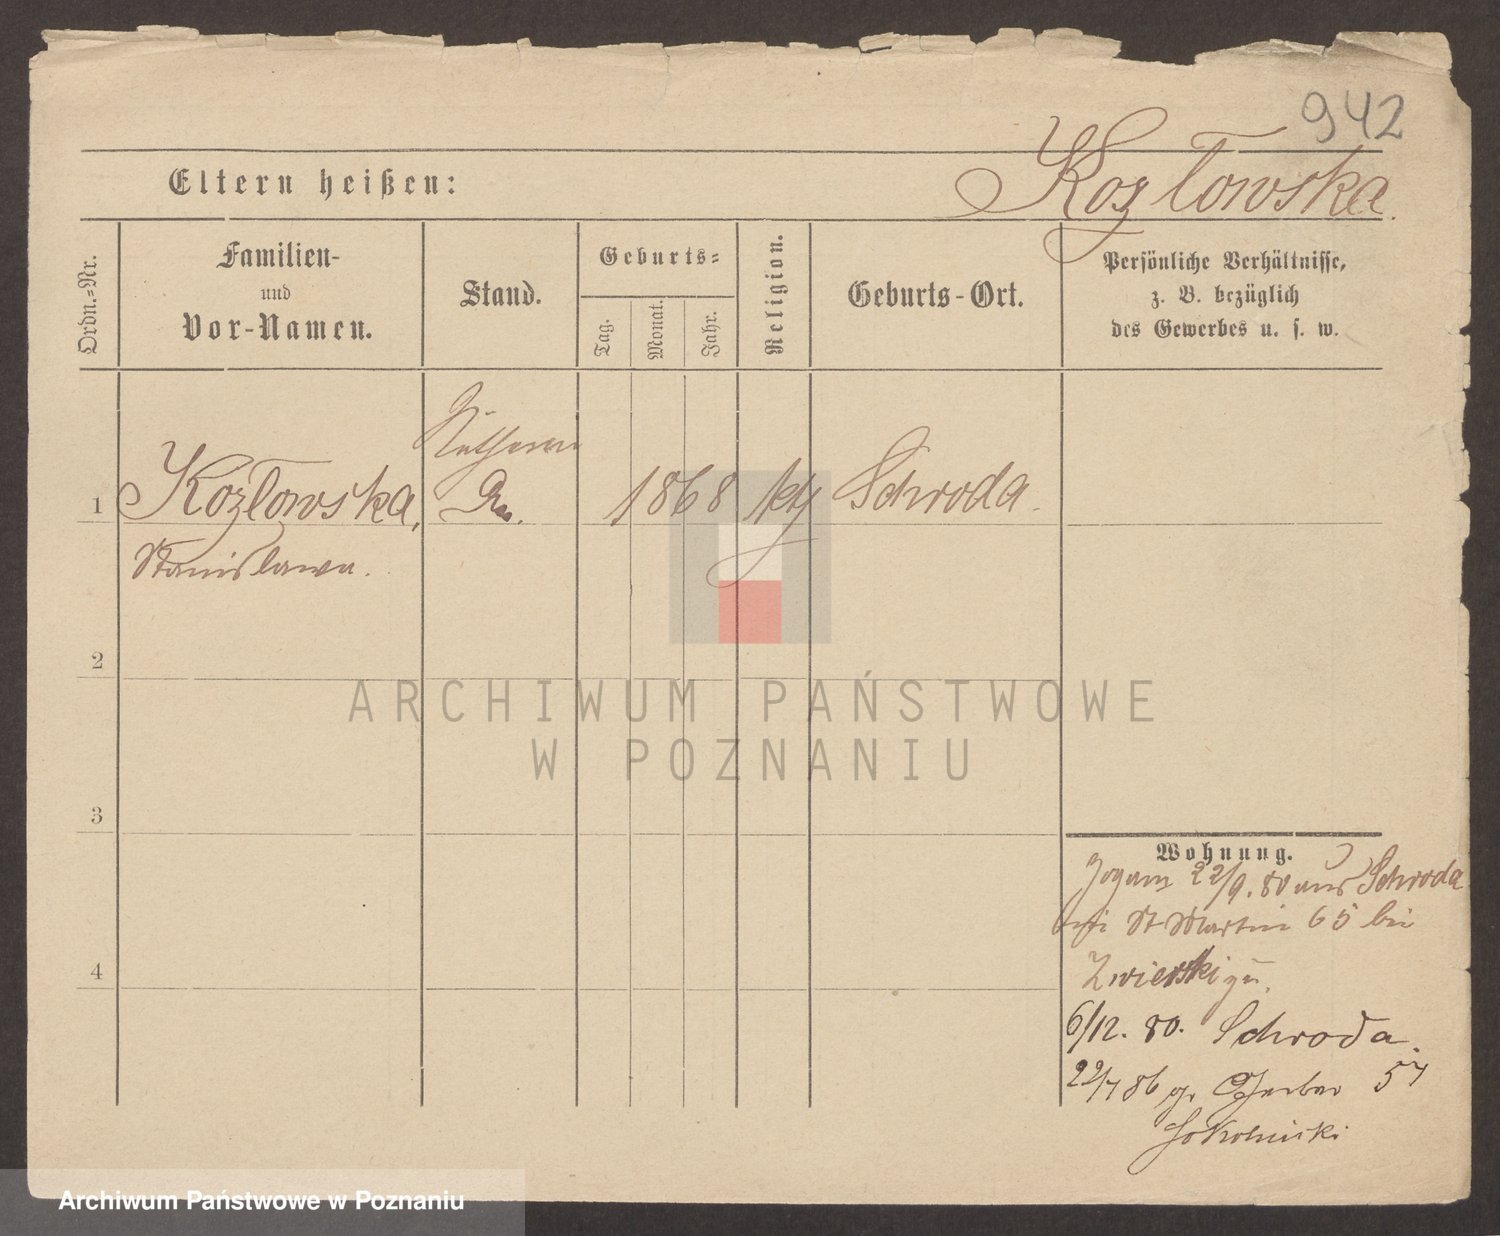 942
Eltern heißen:
Kozłowska.
Ordn.=Nr.
Familien-
und
Vor-Namen.
Stand.
Geburts=
Tag.
Monat.
Jahr.
Religion.
Geburts-Ort.
Persönliche Verhältnisse,
z. B. bezüglich
des Gewerbes u. s. w.
1
Kozłowska,
1868
kth
Schroda.
Stanislawa.
2
3
4
Wohnung.
22/9. 80 aus Schroda
St Martin 65 bei
Zwierski
6/12. 80. Schroda.
22/7 86 gr Gerber 57
ARCHIWUM PAŃSTWOWE
W POZNANIU
Archiwum Państwowe w Poznaniu